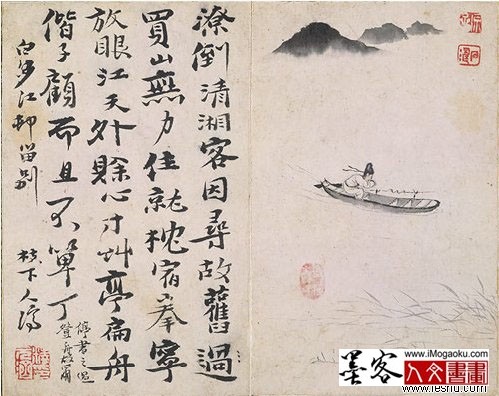 潦倒清湘客因尋故舊過
買山無力住就枕宿奉寧
放眼江天外賒心寸艸亭扁舟
偕子顧而且不單丁
白沙江邨留別
枝下人濟
墨客
www.iMogaoku.com
人文書畫